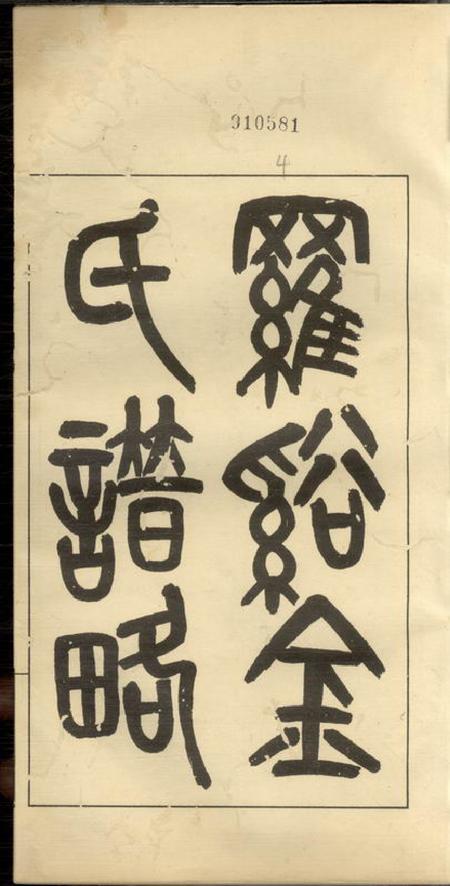 910581
4
羅谿金
氏譜略